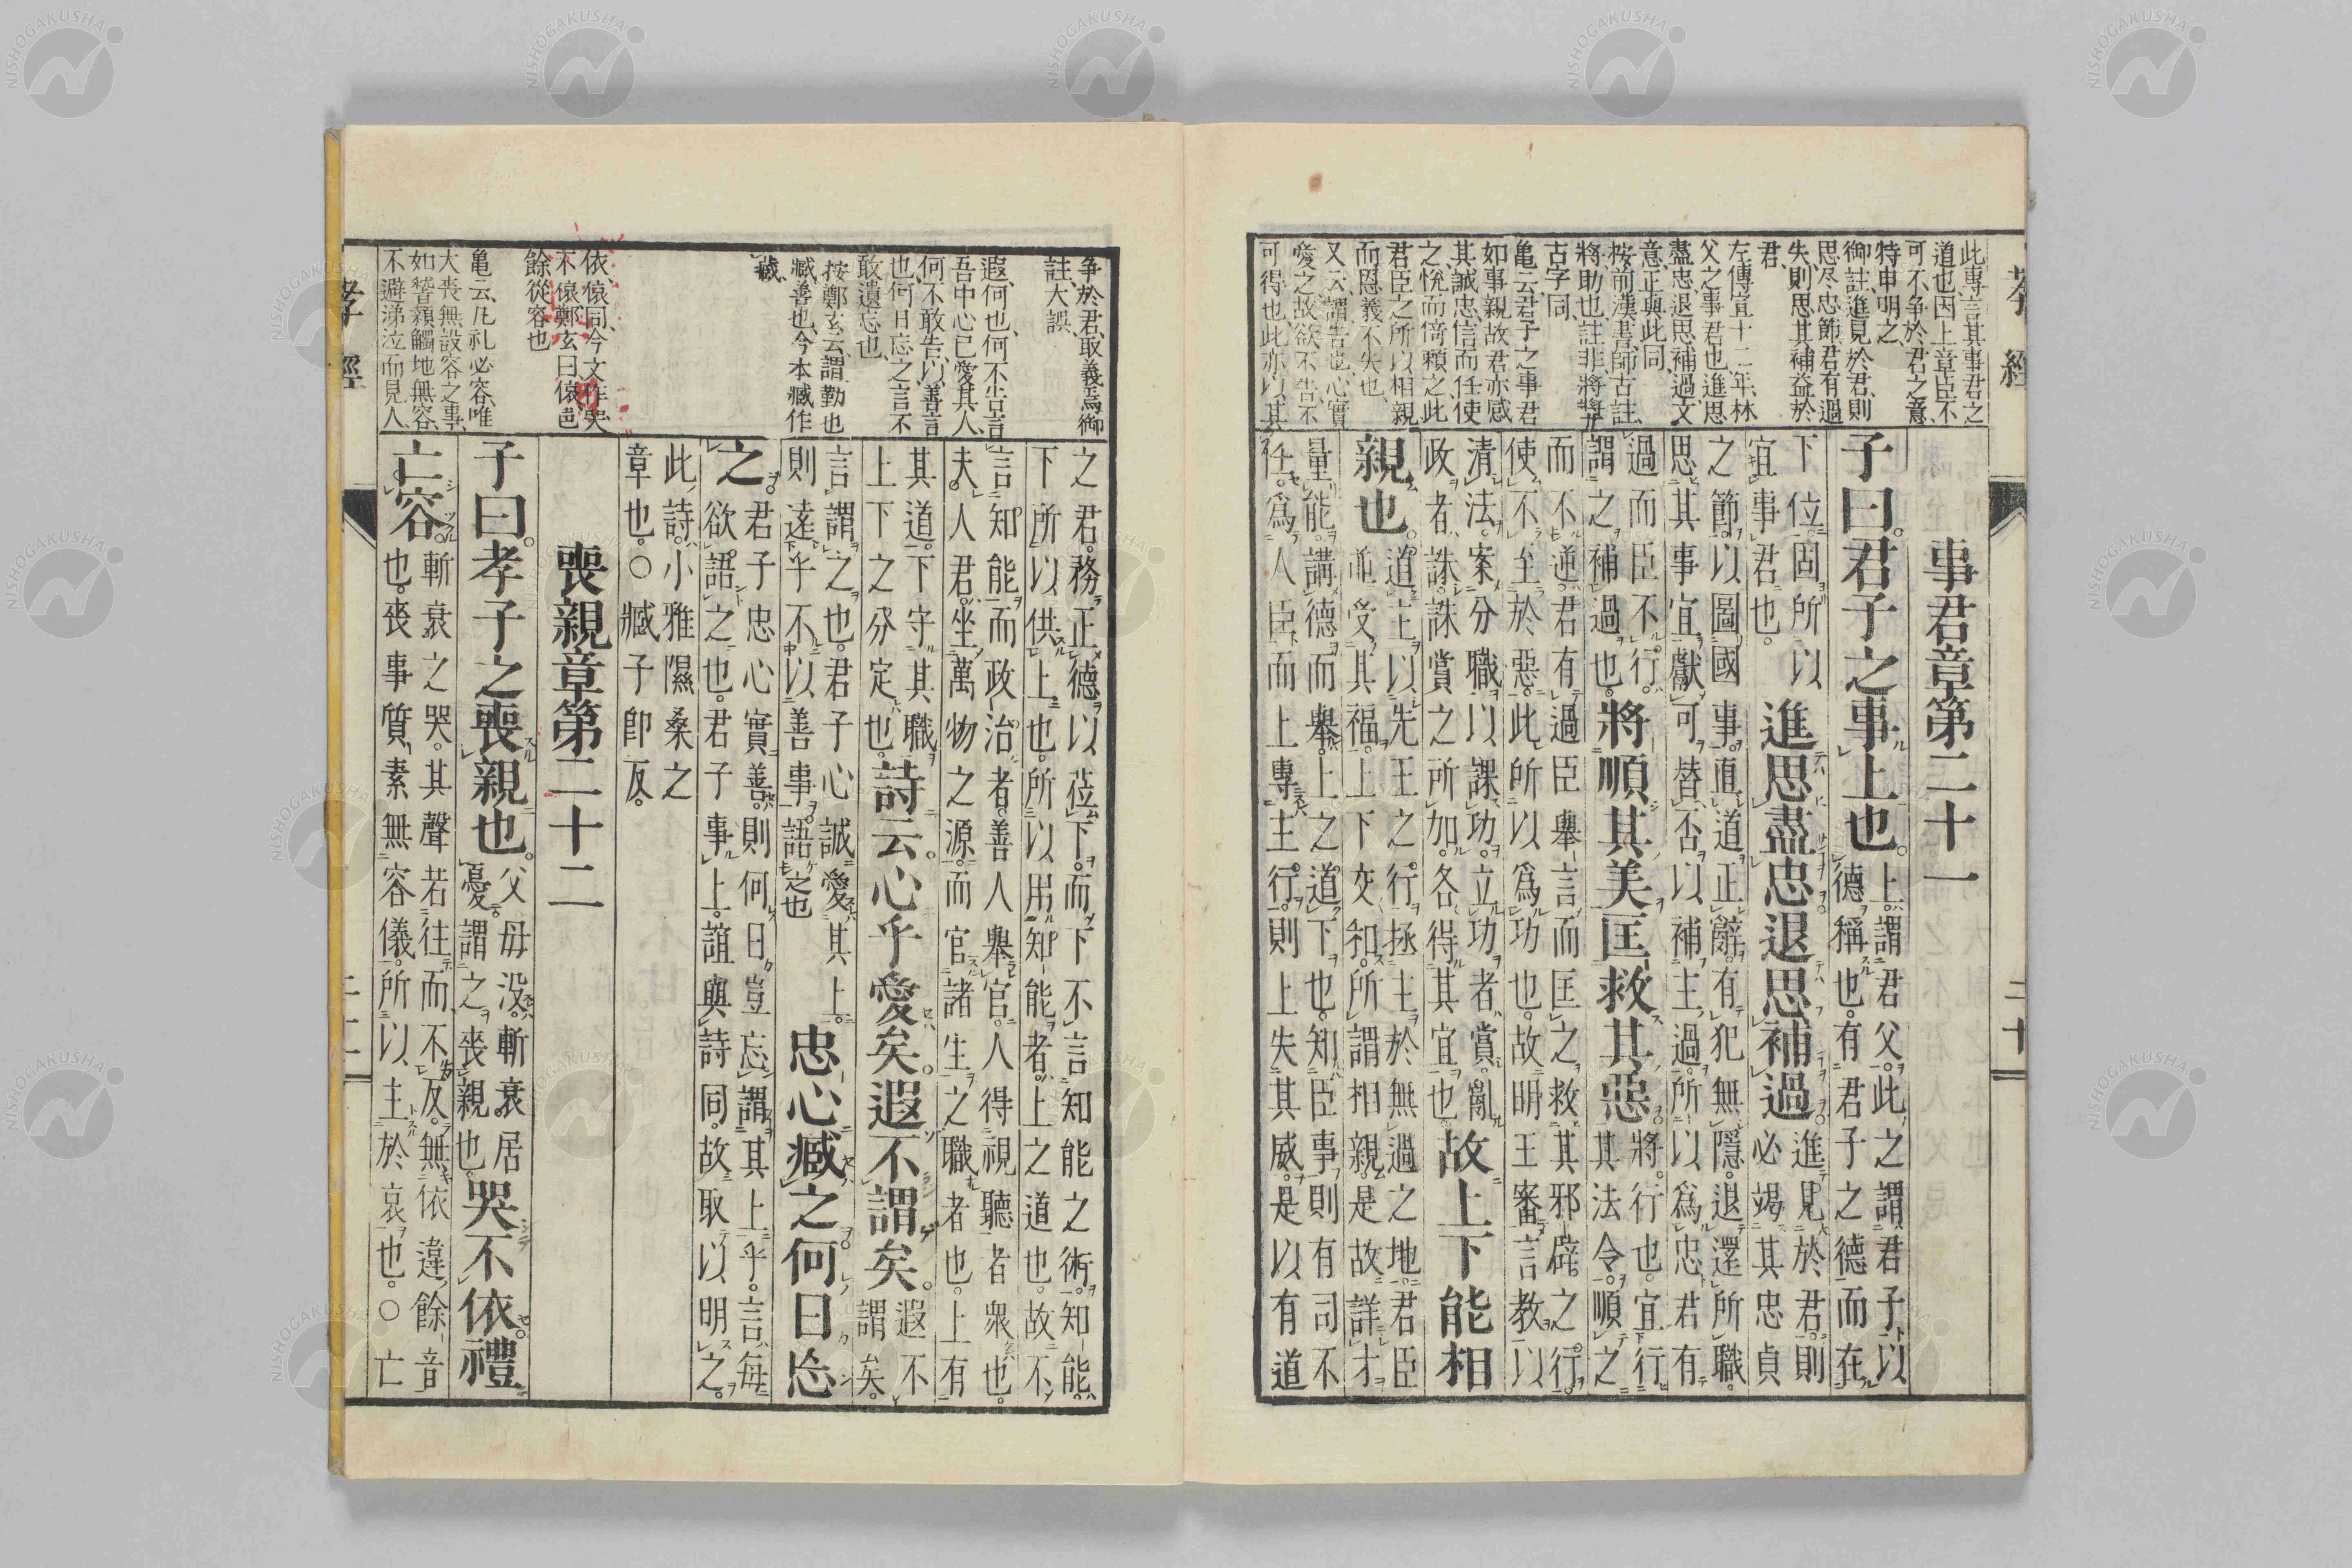 孝經
二十
此專言其事君之
道也因上章臣不
可不爭於君之意
特申明之
御註進見於君則
思尽忠節君有過
失則思其補益於
君
左傳宣十二年林
父之事君也進思
盡忠退思補過文
意正與此同
按前漢書師古註
將助也註非將將
古字同
亀云君子之事君
如事親故君亦感
其誠忠信而任使
之悅而倚頼之此
君臣之所以相親
而恩義不失也
又云謂告也心實
愛之故欲不告不
可得也此亦以其
事君章第二十一
子曰。君子之事上也。
上謂君父。此之謂君子以
德稱也。有君子之德而在
下位。固所以
宜事君也。
進思盡忠退思補過。
進見於君。則
必竭其忠貞
之節。以圖國事。直道正辭。有犯無隱。退還所職。
思其事宜。獻可替否。以補主過。所以爲忠。君有
過而臣不行。
謂之補過也。
將順其美匡救其惡。
將。行也。宜行
其法令。順之
而不逆。君有過。臣舉言而匡之。救其邪辟之行。
使不至於惡。此所以爲功也。故明王審言教。以
清法。案分職。以課功。立功者賞。亂
政者誅。誅賞之所加。各得其宜也。
故上下能相
親也。
道主以先王之行。拯主於無過之地。君臣
並受其福。上下交和。所謂相親。是故詳才
量能。講德而舉。上之道下也。知臣事。則有司不
任。爲人臣而上專主行。則上失其威。是以有道
爭於君取義焉御
註大誤
遐何也何不告言
吾中心已愛其人
何不敢告以善言
也何日忘之言不
敢遺忘也
按鄭玄云謂勤也
臧善也今本臧作
藏
依偯同今文作哭
不偯鄭玄曰偯邑
餘從容也
亀云凡礼必容唯
大喪無設容之事
如稽顙觸地無容
不避涕泣而見人
之君。務正德以莅下。而下不言知能之術。知能。
下所以供上也。所以用知能者。上之道也。故不
言知能。而政治者。善人舉。官人得。視聽者衆也。
夫人君坐萬物之源。而官諸生之職者也。上有
其道。下守其職。
上下之分定也。
詩云。心乎愛矣。遐不謂矣。
遐不
謂矣。
言謂之也。君子心誠愛其上。
則遠乎不以善事語之也
忠心臧之何日忘
之。
君子忠心實善。則何日豈忘謂其上乎。言每
欲語之也。君子事上。誼與詩同。故取以明之。
此詩小雅隰桑之
章也。○臧子郎反。
喪親章第二十二
子曰。孝子之喪親也。
父母没。斬衰居
憂。謂之喪親也。
哭不依禮
亡容。
斬衰之哭。其聲若往而不反。無依違餘音
也。喪事質素無容儀。所以主於哀也。○亡
孝經
二十一
NISHOGAKUSHA